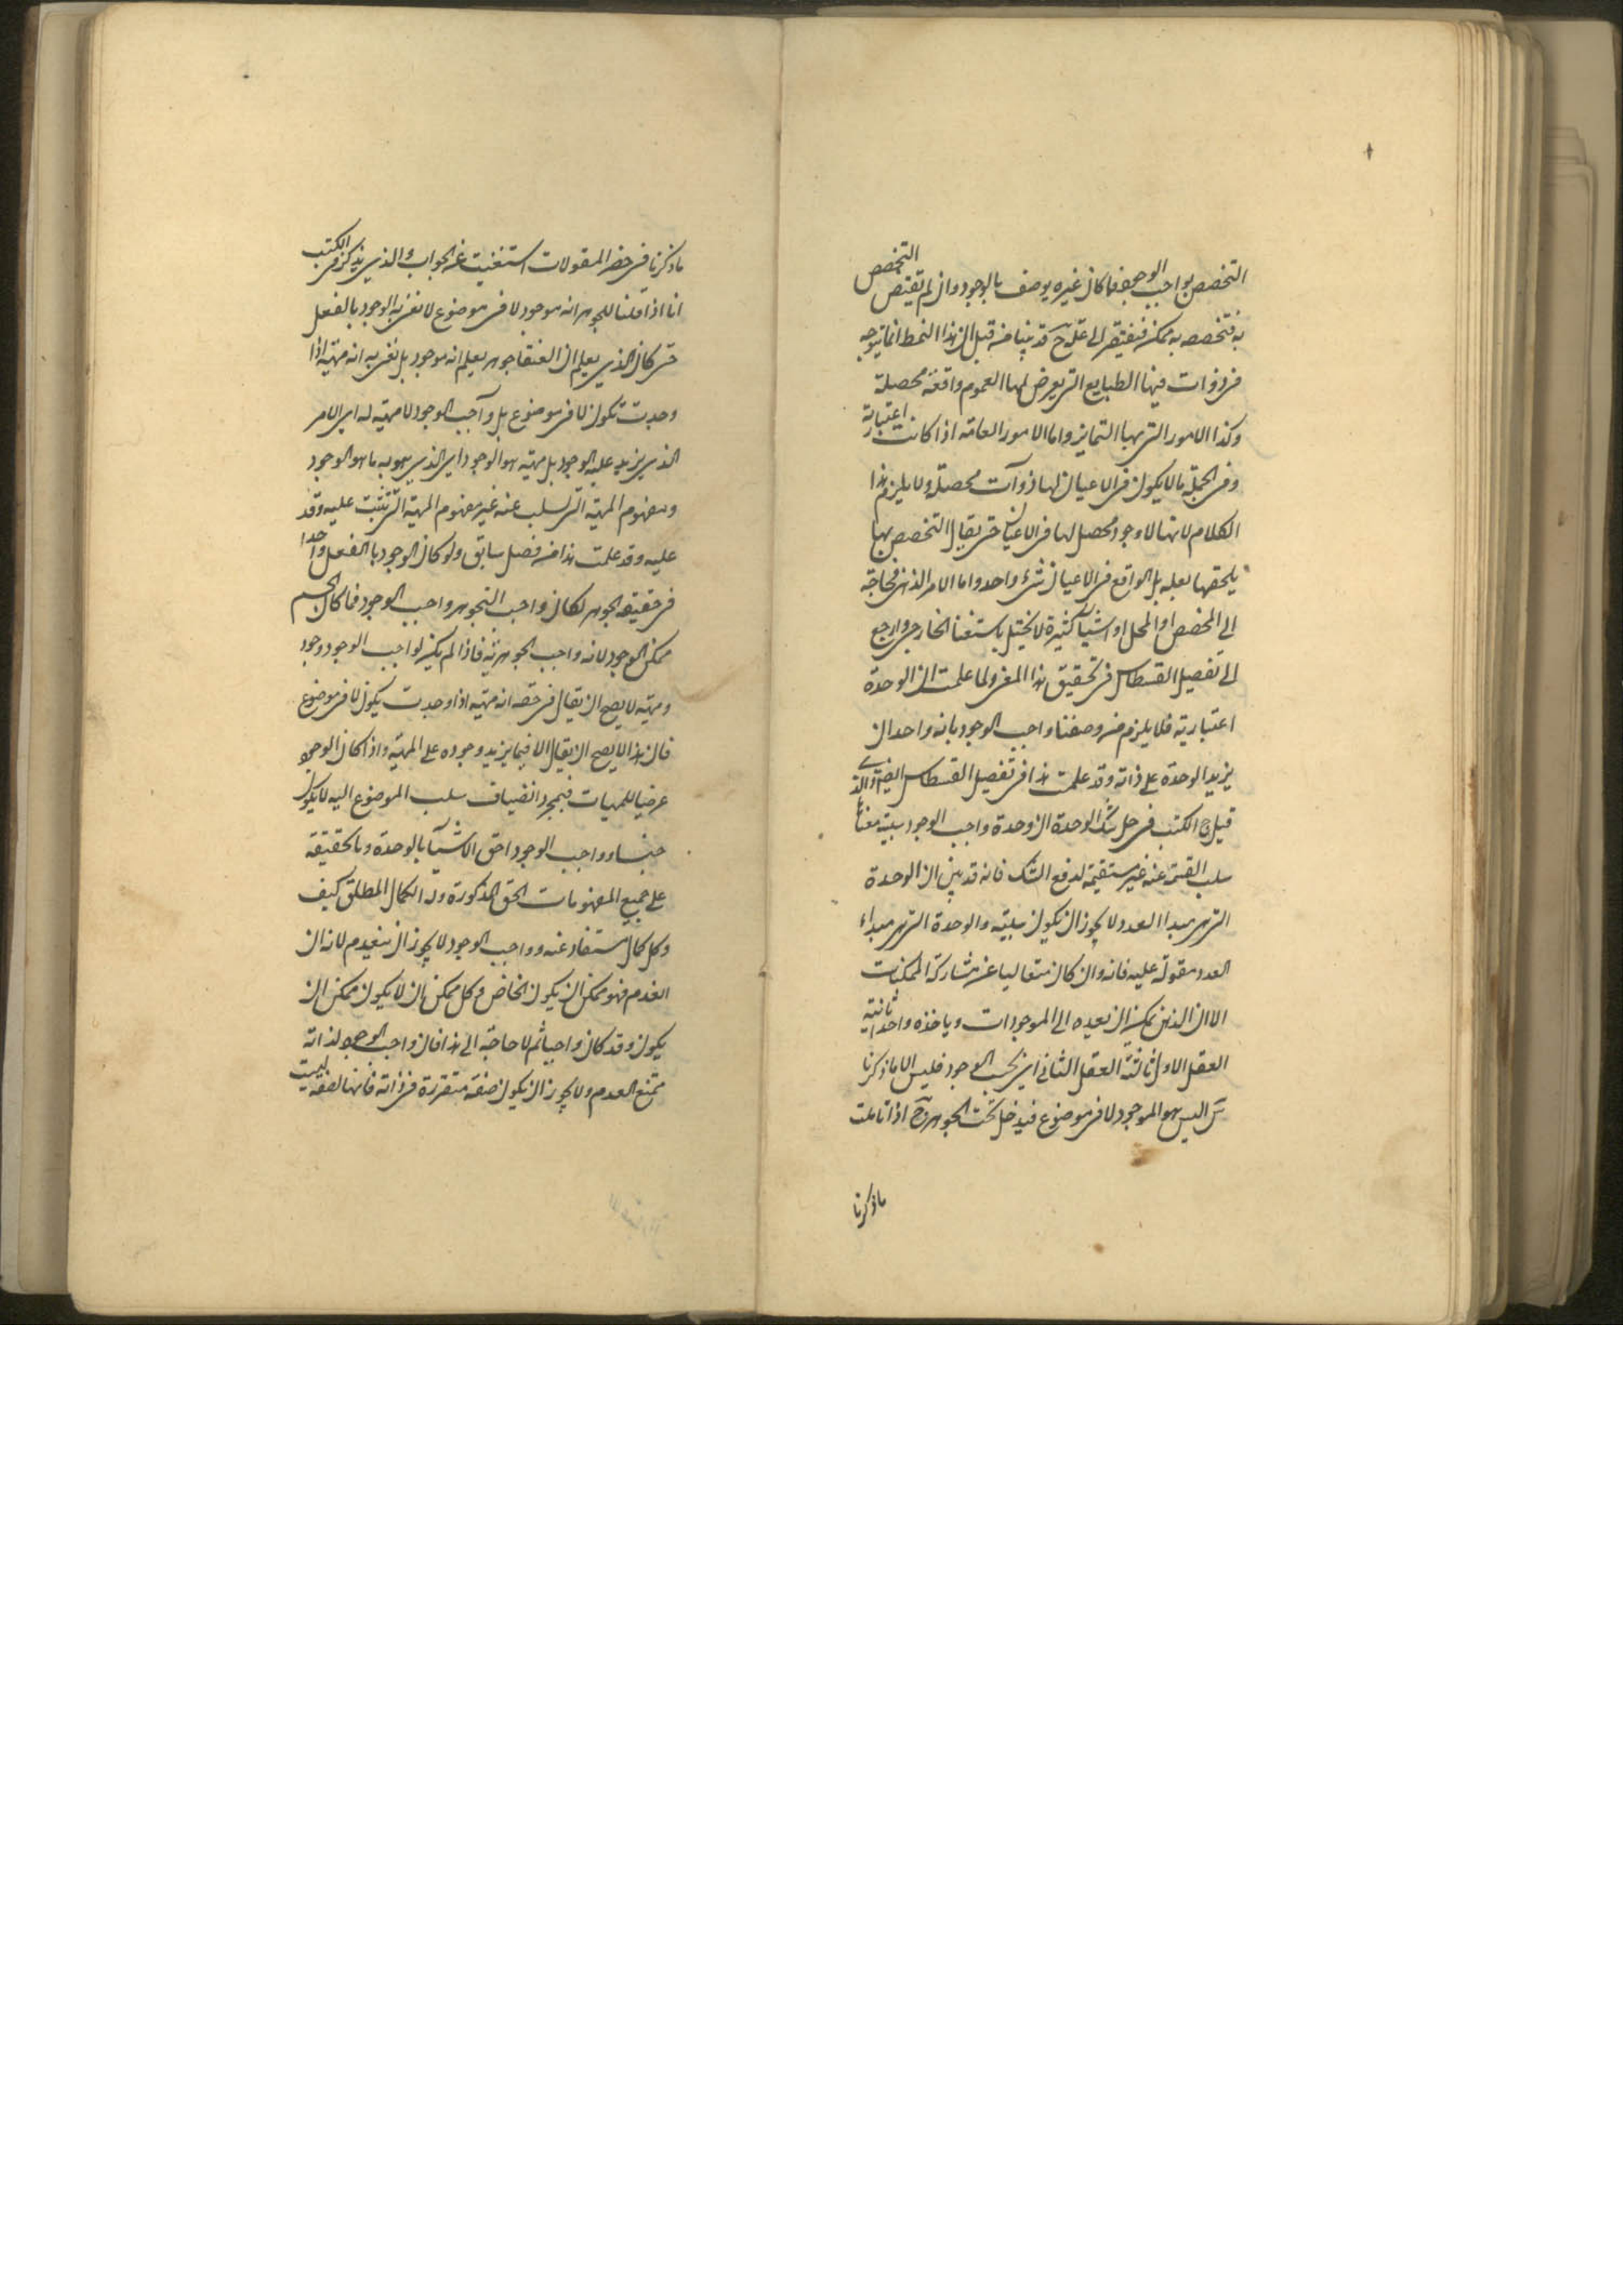 التخصص بواجب الوجود فما كان غيره يوصف بالوجود وان لم تقتض التخصص
به فتخصصه به ممكن فيفتقر الى علة ح قد بينا من قبل ان هذا النمط انما يتوجه
في ذوات فيها الطبايع التي يعرض لها العموم واقعة محصلة
وكذا الامور التي بها التمايز واما الامور العامة اذا كانت اعتبارية
وفي الجملة ما لا يكون في الاعيان لها ذوات محصلة ولا يلزم هذا
الكلام لانها لا وجود محصل لها في الاعيان حتى يقال التخصص بها
يلحقها لعلة بل الواقع في الاعيان شيء واحد واما الامر الذهني فحاجته
الى المخصص او المحل او اشياء كثيرة لا يختل باستغنا الخارجي وارجع
الى تفصيل القسطاس في تحقيق هذا المعنى ولما علمت ان الوحدة
اعتبارية فلا يلزم من وصفنا واجب الوجود بانه واحد ان
يزيد الوحدة على ذاته وقد علمت هذا في تفصيل القسطاس ايضا والذي
قيل في الكتب في حل شك الوحدة ان وحدة واجب الوجود سلبية معناها
سلب القسمة عنه غير مستقيمة لدفع الشك فانه قد بين ان الوحدة
التي هي مبدا العدد لا يجوز ان يكون سلبية والوحدة التي هي مبداء
العدد مقولة عليه فانه وان كان متعاليا عن مشاركة الممكنات
الا ان الذهن يمكنه ان يعده الى الموجودات وياخذه واحدا ثانية
العقل الاول ثالثة العقل الثاني اي بحسب الوجود فليس الا ما ذكرنا
س اليس هو الموجود لا في موضوع فيدخل تحت الجوهر ج اذا تاملت
ماذكرنا
ماذكرنا في حصر المقولات استغنيت عن الجواب والذي يذكر في الكتب
انا اذا قلنا للجوهر انه موجود لا في موضوع لا نعني به الوجود بالفعل
حتى كان الذي يعلم ان العنقا جوهر يعلم انه موجود بل نعني به انه مهية اذا
وجدت تكون لا في موضوع بل واجب الوجود لا مهية له اي الامر
الذي يزيد عليه الوجود بل مهيته هو الوجود اي الذي هو به ما هو الوجود
ومفهوم المهية التي سلب عنه غير مفهوم المهية التي تثبت عليه وقد
عليه وقد علمت هذا من فصل سابق ولو كان الوجود بالفعل واحدا
في حقيقة الجوهر لكان واجب التجوهر واجب الوجود فما كان الجسم
ممكن الوجود لانه واجب الجوهرية فاذا لم يكن لواجب الوجود وجود
ومهية لا يصح ان يقال في حقه انه مهية اذا وجدت يكون لا في موضوع
فان هذا لا يصح ان يقال الا فيما يزيد وجوده على المهية واذا كان الوجود
عرضيا للمهيات فبمجرد انضياف سلب الموضوع اليه لا يكون
جنسا وواجب الوجود احق الاشياء بالوحدة وبالحقيقة
على جميع المفهومات الحق المذكورة وله الكمال المطلق كيف
وكل كمال مستفاد عنه وواجب الوجود لا يجوز ان ينعدم لانه ان
انعدم فهو ممكن ان يكون الخاص وكل ممكن ان لا يكون ممكن ان
يكون وقد كان واجبا ثم لا حاجة الى هذا فان واجب الوجود لذاته
يمتنع العدم ولا يجوز ان يكون صفة متقررة في ذاته فانها لصفة ليست